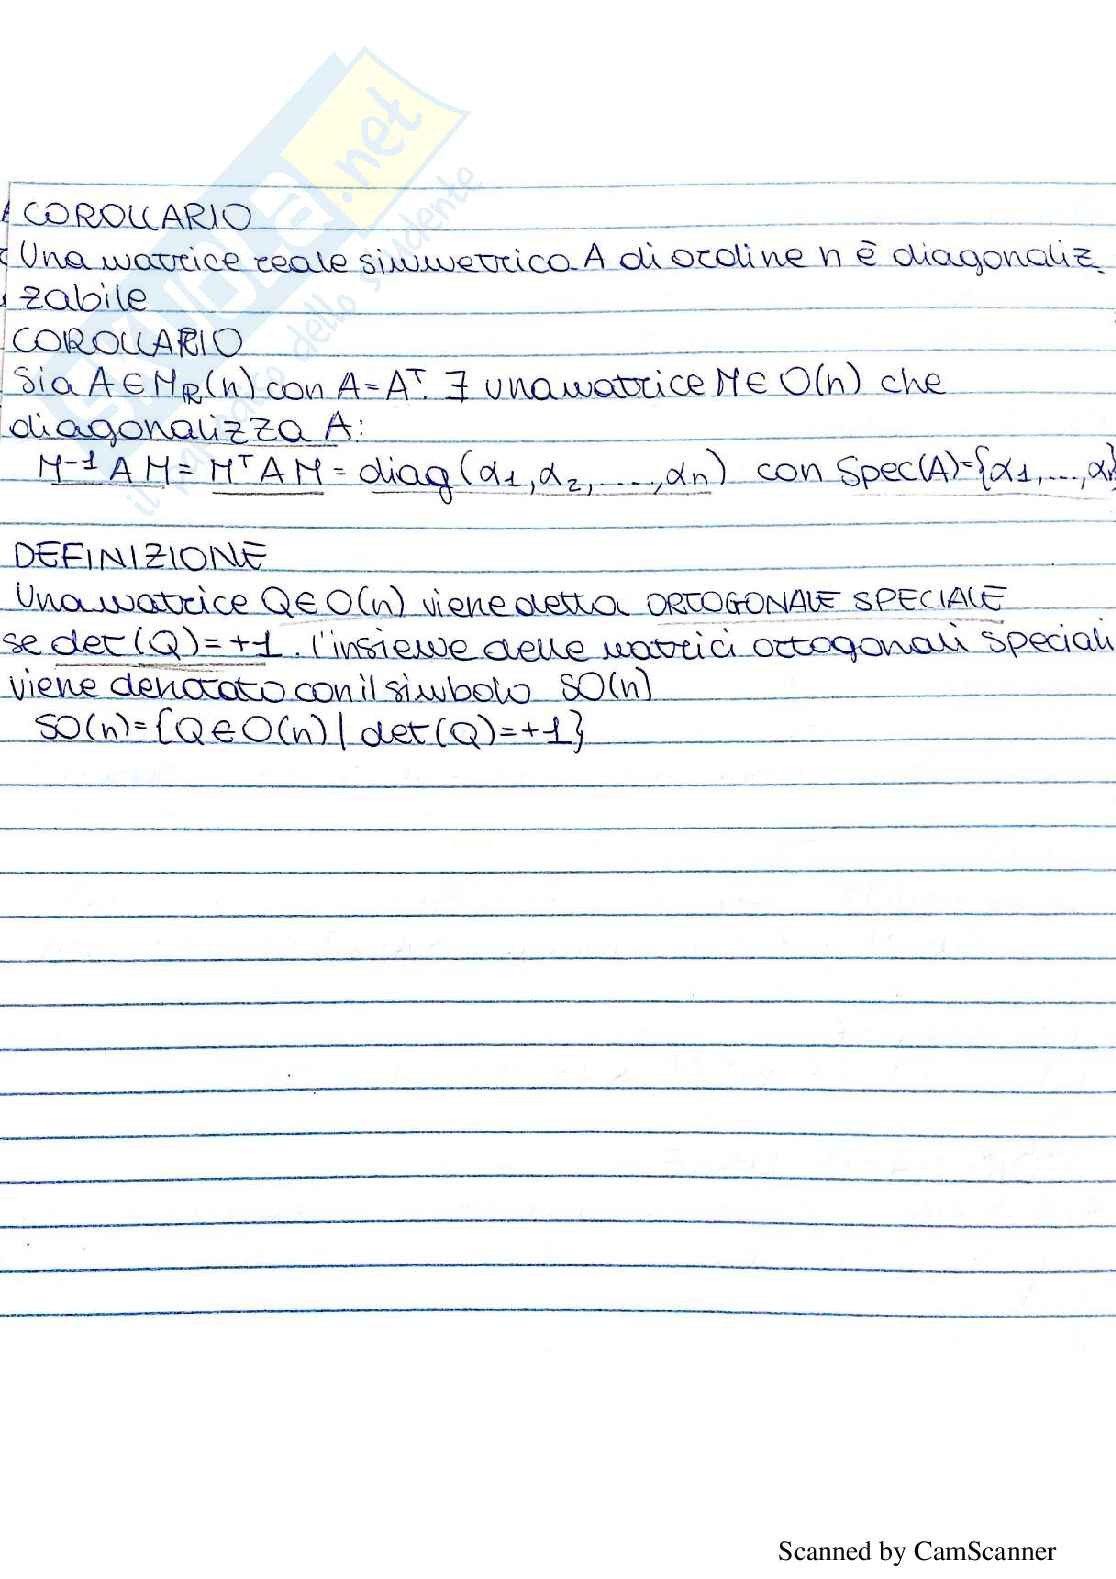 COROLLARIO
Una matrice reale simmetrica A di ordine n è diagonaliz
zabile
COROLLARIO
Sia A ∈ M_R(n) con A = Aᵀ. ∃ una matrice M ∈ O(n) che
diagonalizza A:
M⁻¹ A M = Mᵀ A M = diag (α₁, α₂, ...., αn) con Spec(A) = {α₁, ...., αn}
DEFINIZIONE
Una matrice Q ∈ O(n) viene detta ORTOGONALE SPECIALE
se det (Q) = +1. L'insieme delle matrici ortogonali speciali
viene denotato con il simbolo SO(n)
SO(n) = {Q ∈ O(n) | det (Q) = +1}
Scanned by CamScanner